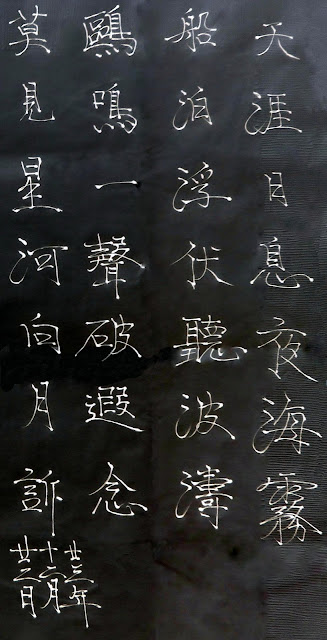 天涯日息夜海霧
船泊浮伏聽波濤
鷗鳴一聲破遐念
莫見星河向月訴
廿三年
十二月
廿三日